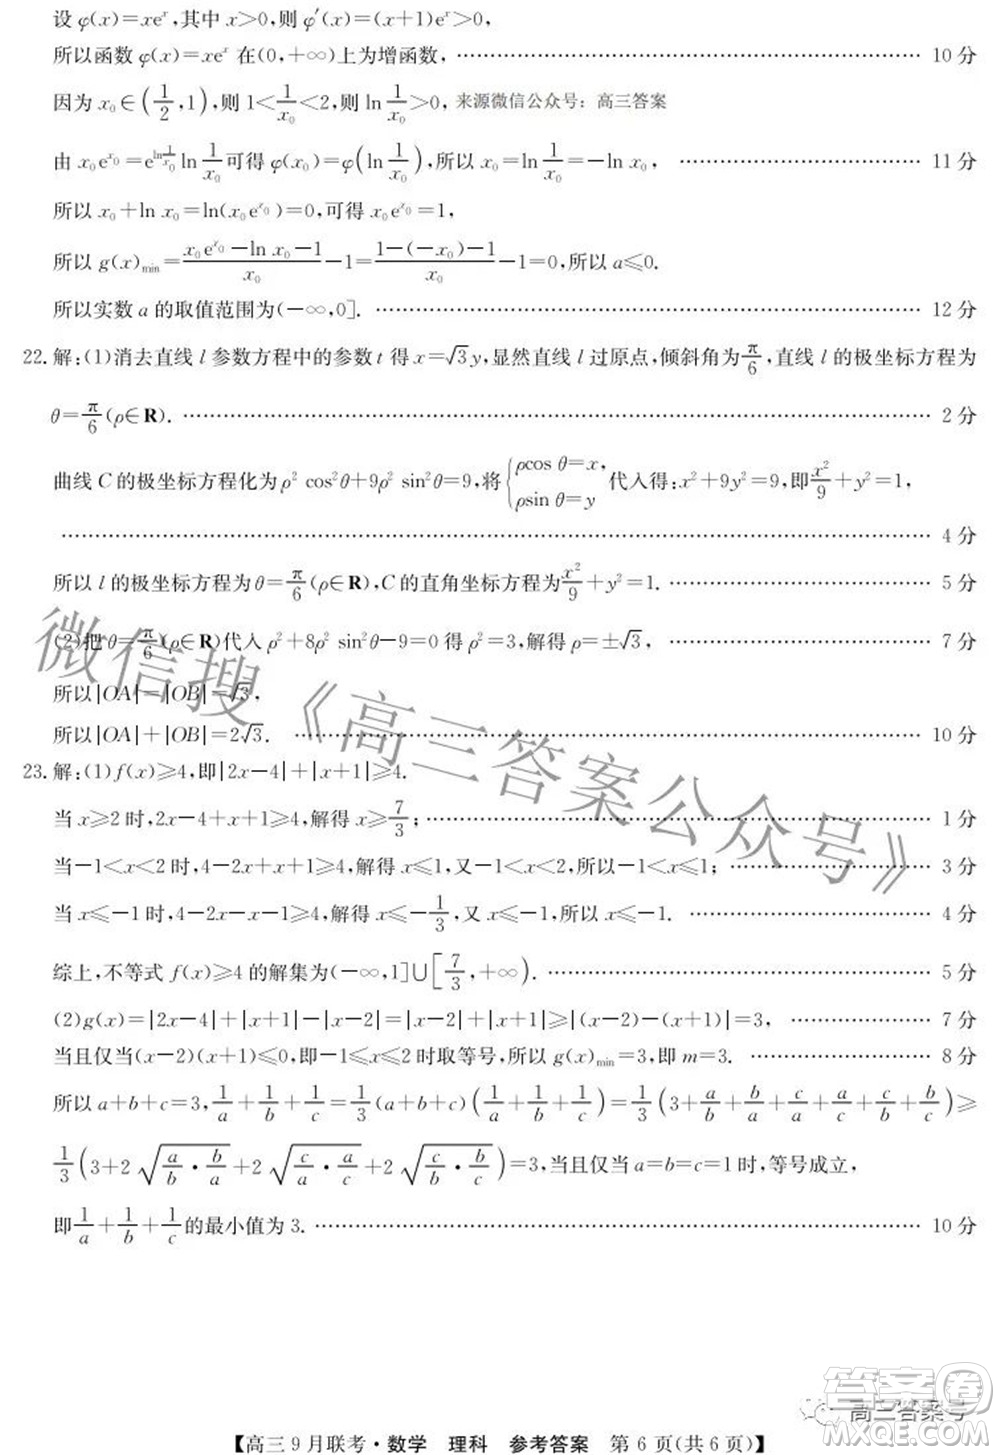 设 φ(x)=xeˣ,其中 x>0,则 φ′(x)=(x+1)eˣ>0,
所以函数 φ(x)=xeˣ 在(0,+∞)上为增函数, …… 10 分
因为 x₀∈(1/2,1),则 1<1/x₀<2,则 ln 1/x₀>0, 来源微信公众号：高三答案
由 x₀e^{x₀}=e^{ln 1/x₀} ln 1/x₀ 可得 φ(x₀)=φ(ln 1/x₀),所以 x₀=ln 1/x₀=-ln x₀, …… 11 分
所以 x₀+ln x₀=ln(x₀e^{x₀})=0,可得 x₀e^{x₀}=1,
所以 g(x)min=(x₀e^{x₀}-ln x₀-1)/x₀-1=(1-(-x₀)-1)/x₀-1=0,所以 a≤0.
所以实数 a 的取值范围为(-∞,0]. …… 12 分
22.解:(1)消去直线 l 参数方程中的参数 t 得 x=√3y,显然直线 l 过原点,倾斜角为π/6,直线 l 的极坐标方程为
θ=π/6(ρ∈R). …… 2 分
曲线 C 的极坐标方程化为 ρ² cos²θ+9ρ² sin²θ=9,将{ρcos θ=x, ρsin θ=y 代入得:x²+9y²=9,即x²/9+y²=1,
…… 4 分
所以 l 的极坐标方程为 θ=π/6(ρ∈R),C 的直角坐标方程为x²/9+y²=1. …… 5 分
(2)把 θ=π/6(ρ∈R)代入 ρ²+8ρ² sin²θ-9=0 得 ρ²=3,解得 ρ=±√3, …… 7 分
所以|OA|=|OB|=√3,
所以|OA|+|OB|=2√3. …… 10 分
23.解:(1)f(x)≥4,即|2x-4|+|x+1|≥4.
当 x≥2 时,2x-4+x+1≥4,解得 x≥7/3; …… 1 分
当-1<x<2 时,4-2x+x+1≥4,解得 x≤1,又-1<x<2,所以-1<x≤1; …… 3 分
当 x≤-1 时,4-2x-x-1≥4,解得 x≤-1/3,又 x≤-1,所以 x≤-1. …… 4 分
综上,不等式 f(x)≥4 的解集为(-∞,1]∪[7/3,+∞). …… 5 分
(2)g(x)=|2x-4|+|x+1|-|x-2|=|x-2|+|x+1|≥|(x-2)-(x+1)|=3, …… 7 分
当且仅当(x-2)(x+1)≤0,即-1≤x≤2 时取等号,所以 g(x)min=3,即 m=3. …… 8 分
所以 a+b+c=3,1/a+1/b+1/c=1/3(a+b+c)(1/a+1/b+1/c)=1/3(3+a/b+b/a+c/a+a/c+c/b+b/c)≥
1/3(3+2√(a/b·b/a)+2√(c/a·a/c)+2√(c/b·b/c))=3,当且仅当 a=b=c=1 时,等号成立,
即1/a+1/b+1/c的最小值为 3. …… 10 分
微信搜《高三答案公众号》
答案卷
MXQE.COM
高三答案号
【高三 9 月联考·数学 理科 参考答案 第 6 页(共 6 页)】